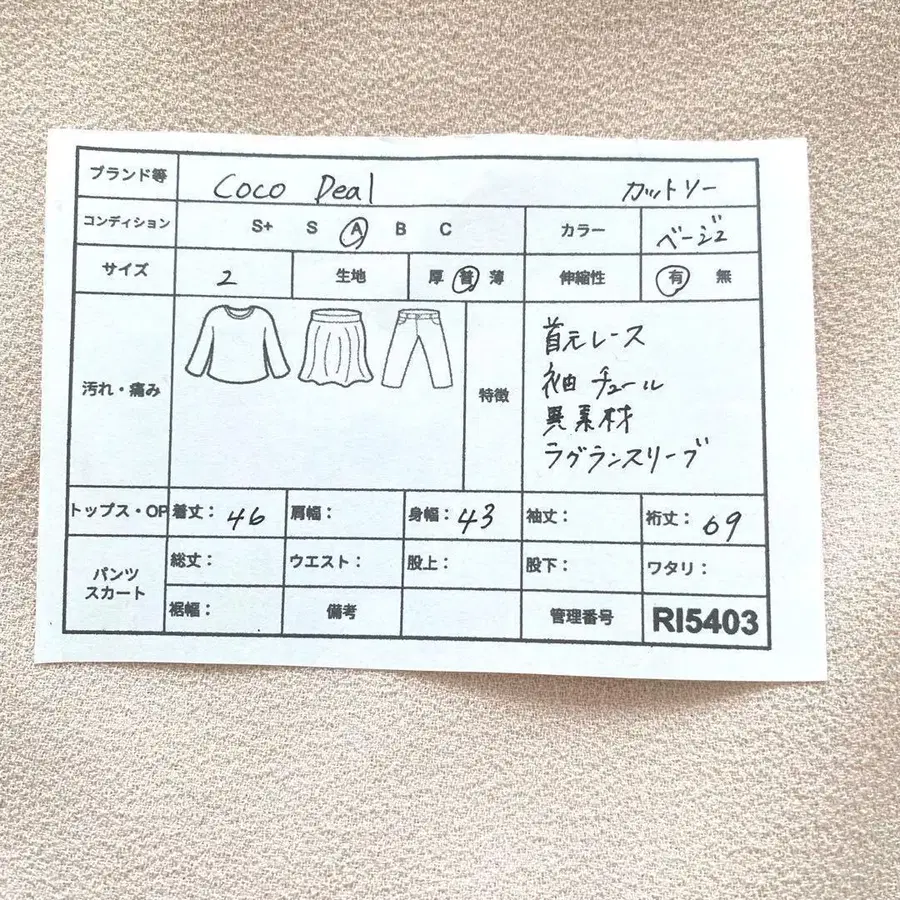 ブランド等 Coco Deal カットソー
コンディション S+ S A B C カラー ベージュ
サイズ 2 生地 厚 普 薄 伸縮性 有 無
汚れ・痛み 特徴
首元レース
袖 チュール
異素材
ラグランスリーブ
トップス・OP 着丈： 46 肩幅： 身幅： 43 袖丈： 裄丈： 69
パンツ
スカート
総丈： ウエスト： 股上： 股下： ワタリ：
裾幅： 備考 管理番号 RI5403